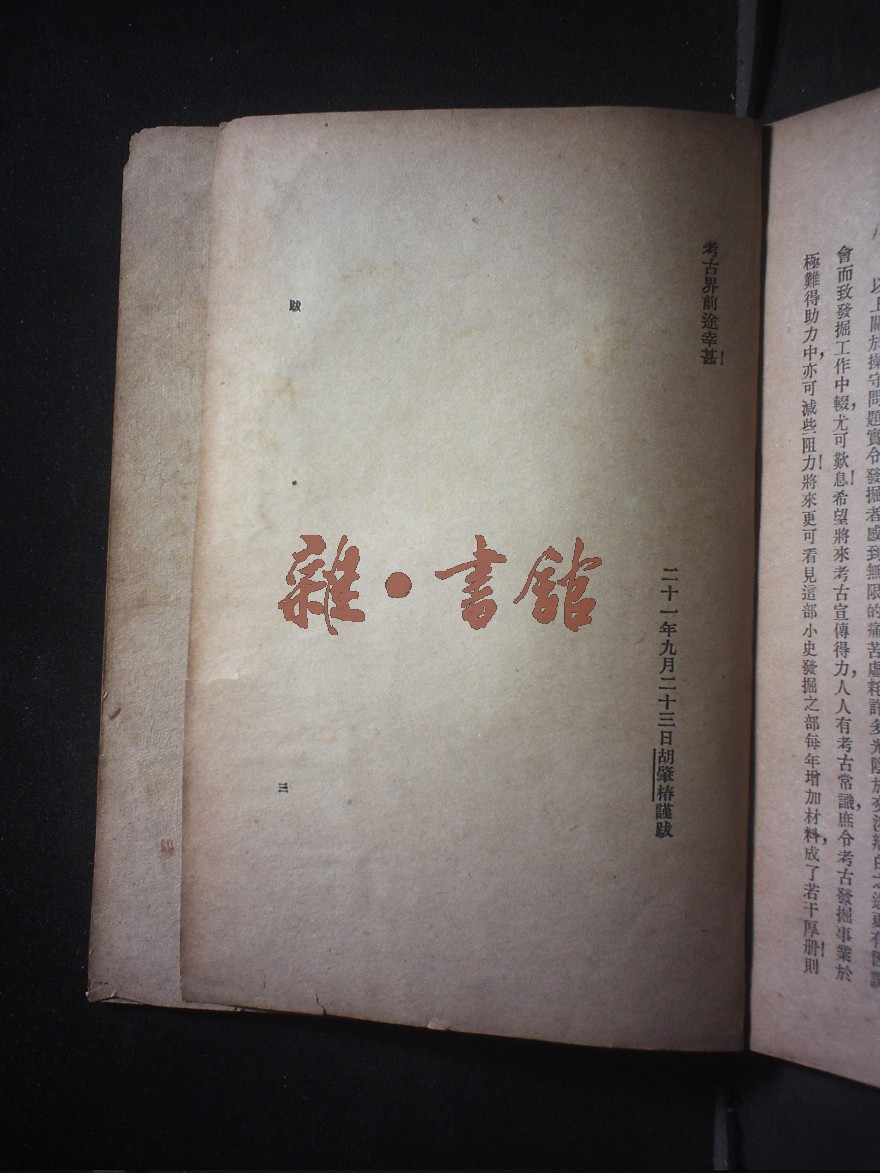 以上關於操守問題實令發掘者感到無限的痛苦虛耗許多光陰於交涉辯白之
會而致發掘工作中輟，尤可歎息！希望將來考古宣傳得力，人人有考古常識，庶令考古發掘事業於
極難得助力中，亦可減些阻力！將來更可看見這部小史發掘之部每年增加材料，成了若干厚册！則
考古界前途幸甚！
二十一年九月二十三日胡肇椿謹跋
跋
三
雜•書館